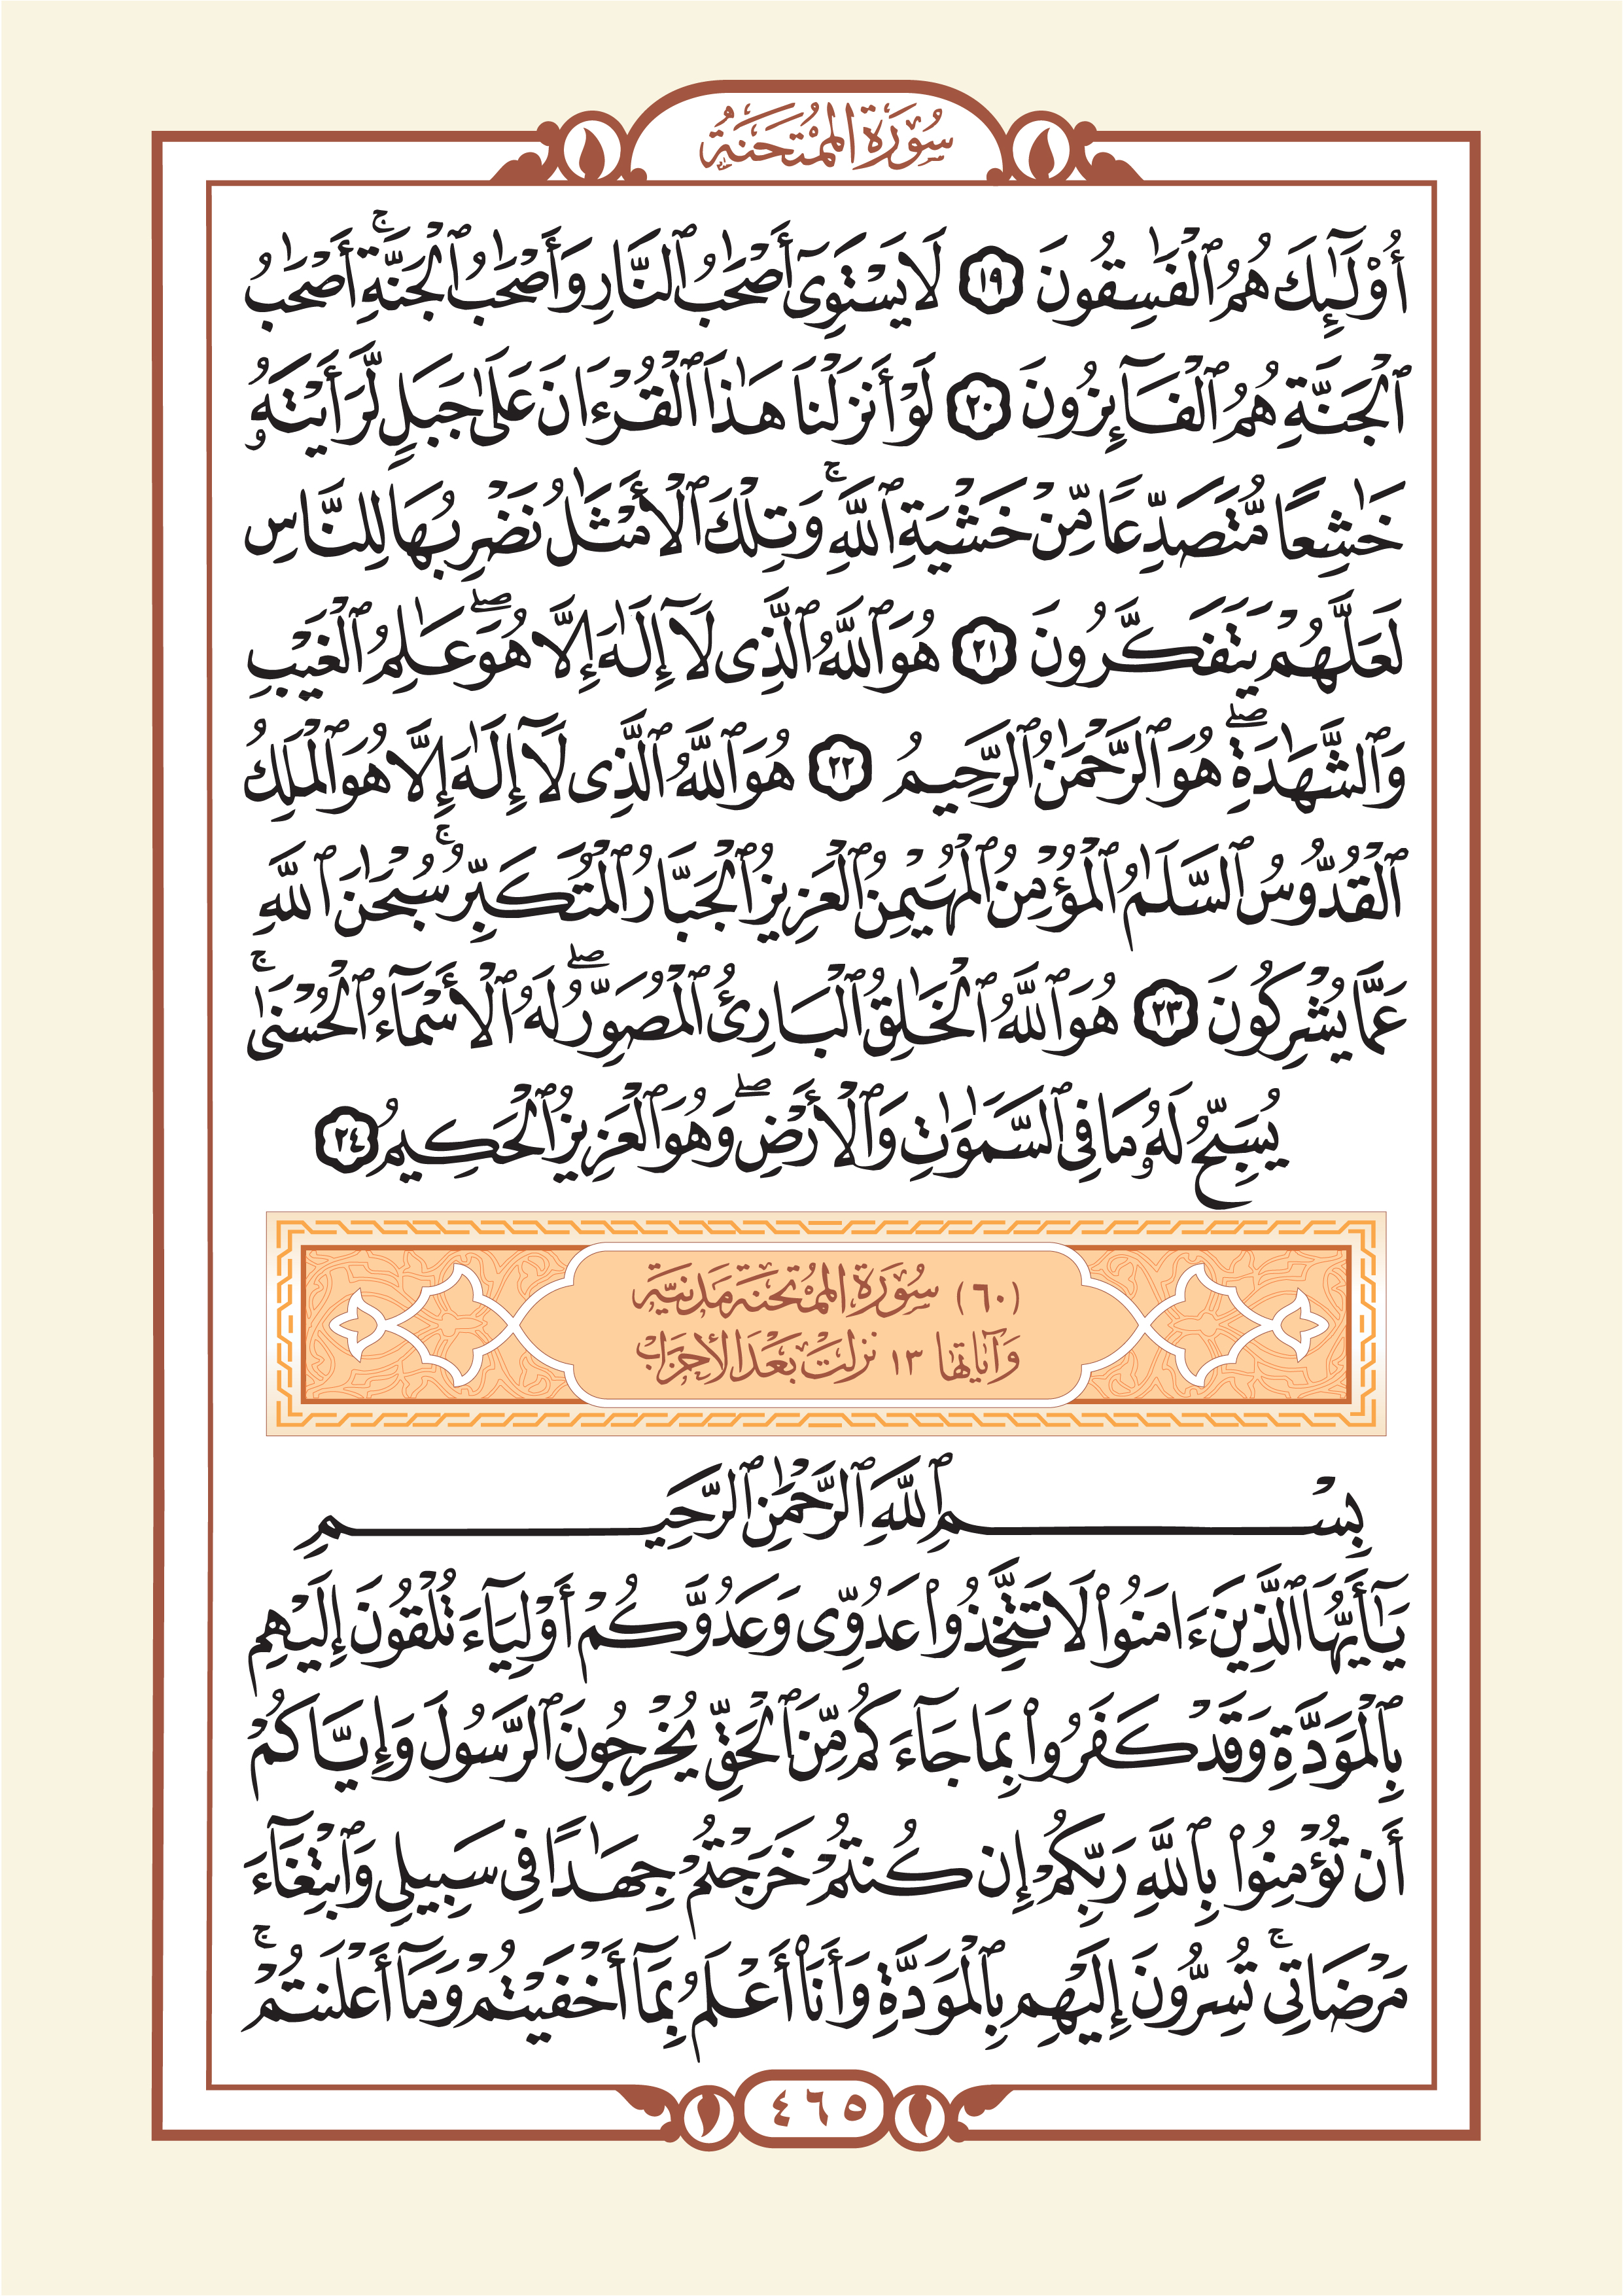 سُورَةُ المُمْتَحَنَةِ
أُوْلَٰٓئِكَ هُمُ ٱلْفَٰسِقُونَ ١٩ لَا يَسْتَوِىٓ أَصْحَٰبُ ٱلنَّارِ وَأَصْحَٰبُ ٱلْجَنَّةِ ۚ أَصْحَٰبُ
ٱلْجَنَّةِ هُمُ ٱلْفَآئِزُونَ ٢٠ لَوْ أَنزَلْنَا هَٰذَا ٱلْقُرْءَانَ عَلَىٰ جَبَلٍ لَّرَأَيْتَهُۥ
خَٰشِعًا مُّتَصَدِّعًا مِّنْ خَشْيَةِ ٱللَّهِ ۚ وَتِلْكَ ٱلْأَمْثَٰلُ نَضْرِبُهَا لِلنَّاسِ
لَعَلَّهُمْ يَتَفَكَّرُونَ ٢١ هُوَ ٱللَّهُ ٱلَّذِى لَآ إِلَٰهَ إِلَّا هُوَ ۖ عَٰلِمُ ٱلْغَيْبِ
وَٱلشَّهَٰدَةِ ۖ هُوَ ٱلرَّحْمَٰنُ ٱلرَّحِيمُ ٢٢ هُوَ ٱللَّهُ ٱلَّذِى لَآ إِلَٰهَ إِلَّا هُوَ ٱلْمَلِكُ
ٱلْقُدُّوسُ ٱلسَّلَٰمُ ٱلْمُؤْمِنُ ٱلْمُهَيْمِنُ ٱلْعَزِيزُ ٱلْجَبَّارُ ٱلْمُتَكَبِّرُ ۚ سُبْحَٰنَ ٱللَّهِ
عَمَّا يُشْرِكُونَ ٢٣ هُوَ ٱللَّهُ ٱلْخَٰلِقُ ٱلْبَارِئُ ٱلْمُصَوِّرُ ۖ لَهُ ٱلْأَسْمَآءُ ٱلْحُسْنَىٰ ۚ
يُسَبِّحُ لَهُۥ مَا فِى ٱلسَّمَٰوَٰتِ وَٱلْأَرْضِ ۖ وَهُوَ ٱلْعَزِيزُ ٱلْحَكِيمُ ٢٤
(٦٠) سُورَةُ المُمْتَحَنَةِ مَدَنِيَّة
وَآيَاتُهَا ١٣ نَزَلَتْ بَعْدَ الأَحْزَابِ
بِسْمِ ٱللَّهِ ٱلرَّحْمَٰنِ ٱلرَّحِيمِ
يَٰٓأَيُّهَا ٱلَّذِينَ ءَامَنُوا۟ لَا تَتَّخِذُوا۟ عَدُوِّى وَعَدُوَّكُمْ أَوْلِيَآءَ تُلْقُونَ إِلَيْهِم
بِٱلْمَوَدَّةِ وَقَدْ كَفَرُوا۟ بِمَا جَآءَكُم مِّنَ ٱلْحَقِّ يُخْرِجُونَ ٱلرَّسُولَ وَإِيَّاكُمْ
أَن تُؤْمِنُوا۟ بِٱللَّهِ رَبِّكُمْ إِن كُنتُمْ خَرَجْتُمْ جِهَٰدًا فِى سَبِيلِى وَٱبْتِغَآءَ
مَرْضَاتِى ۚ تُسِرُّونَ إِلَيْهِم بِٱلْمَوَدَّةِ وَأَنَا۠ أَعْلَمُ بِمَآ أَخْفَيْتُمْ وَمَآ أَعْلَنتُمْ ۚ
٤٦٥